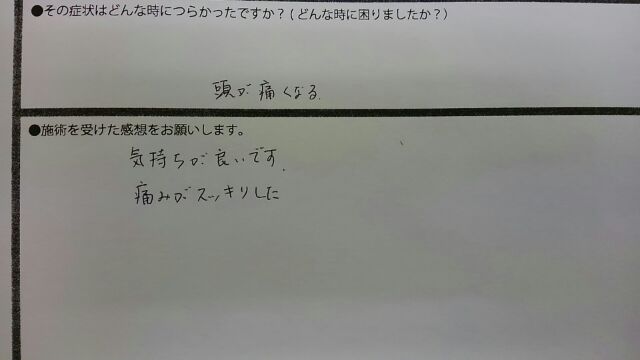 ●その症状はどんな時につらかったですか？(どんな時に困りましたか？)
頭が痛くなる.
●施術を受けた感想をお願いします。
気持ちが良いです.
痛みがスッキリした